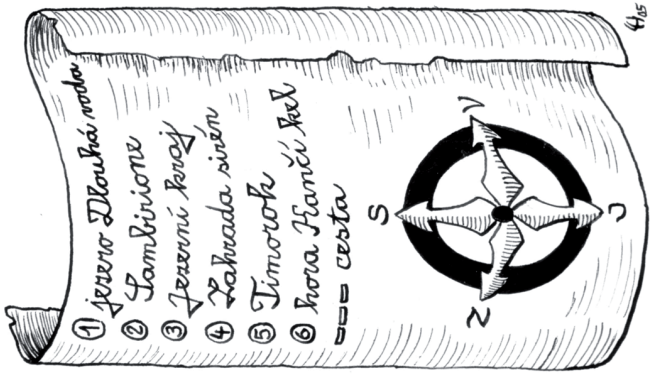 ① jezero Dlouhá voda
② Sambirione
③ Jezerní kraj
④ Zahrada sirén
⑤ Timorok
⑥ hora Kančí kel
cesta
S
V
J
Z